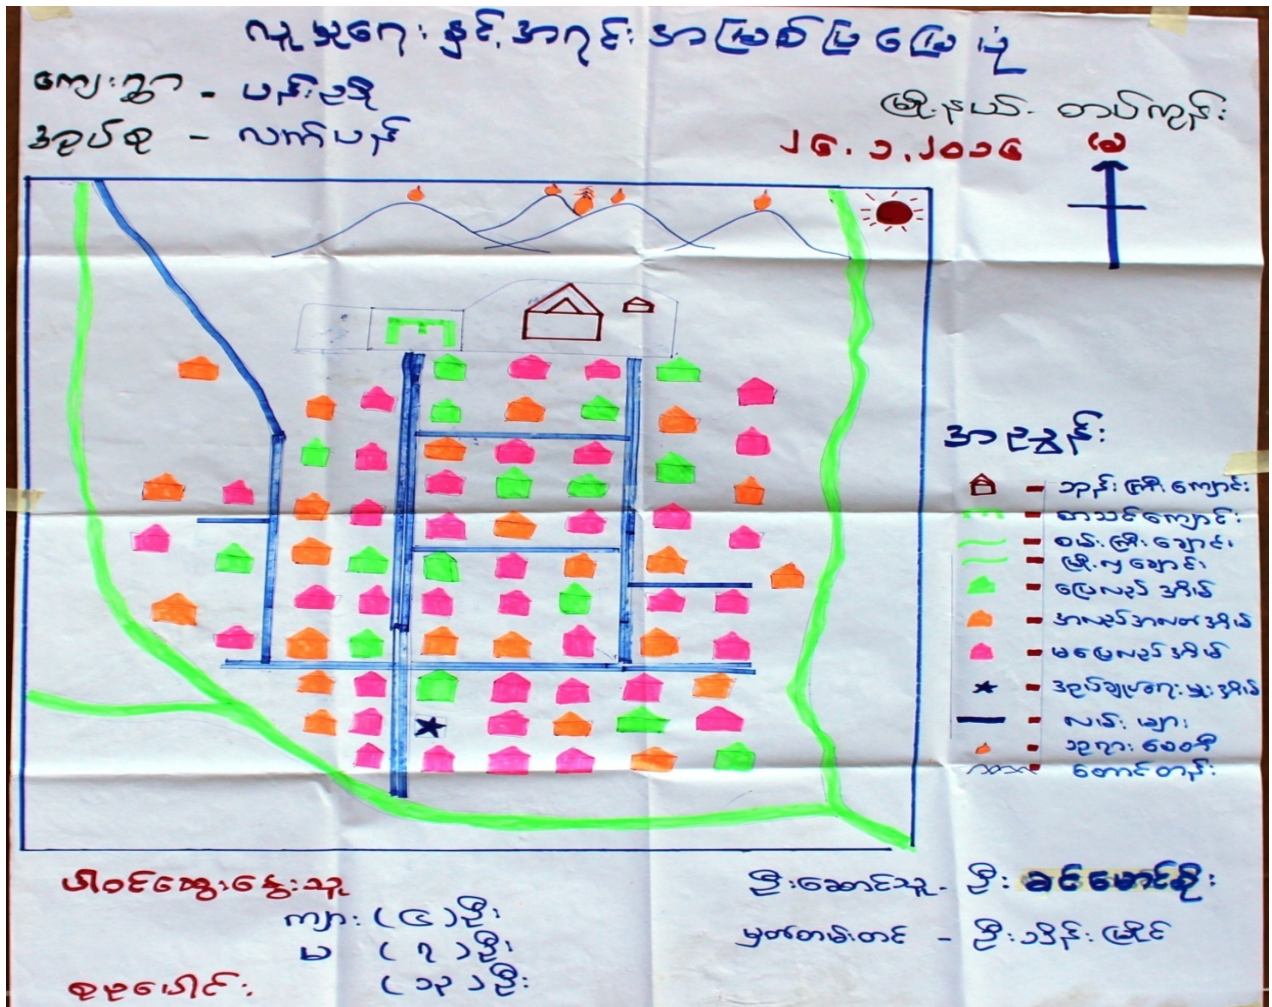 လူမှုရေးနှင့်အရင်းအမြစ်ပြမြေပုံ
ကျေးရွာ - ပန်းညှို
အုပ်စု - လက်ပန်
မြို့နယ် - တပ်ကုန်း
၂၆.၁.၂၀၁၆
(မ)
အညွှန်း
ဘုန်းကြီးကျောင်း
စာသင်ကျောင်း
စမ်းကြီးချောင်း
မြို့လှချောင်း
ပြေလည်အိမ်
အလည်အလတ်အိမ်
မပြေလည်အိမ်
အုပ်ချုပ်ရေးမှူးအိမ်
လမ်းများ
ဘုရားစေတီ
တောင်တန်း
ပါဝင်ဆွေးနွေးသူ
ကျား (၆) ဦး
မ (၇) ဦး
စုစုပေါင်း (၁၃) ဦး
ဦးဆောင်သူ - ဦးခင်မောင်စိုး
မှတ်တမ်းတင် - ဦးသိန်းမြိုင်